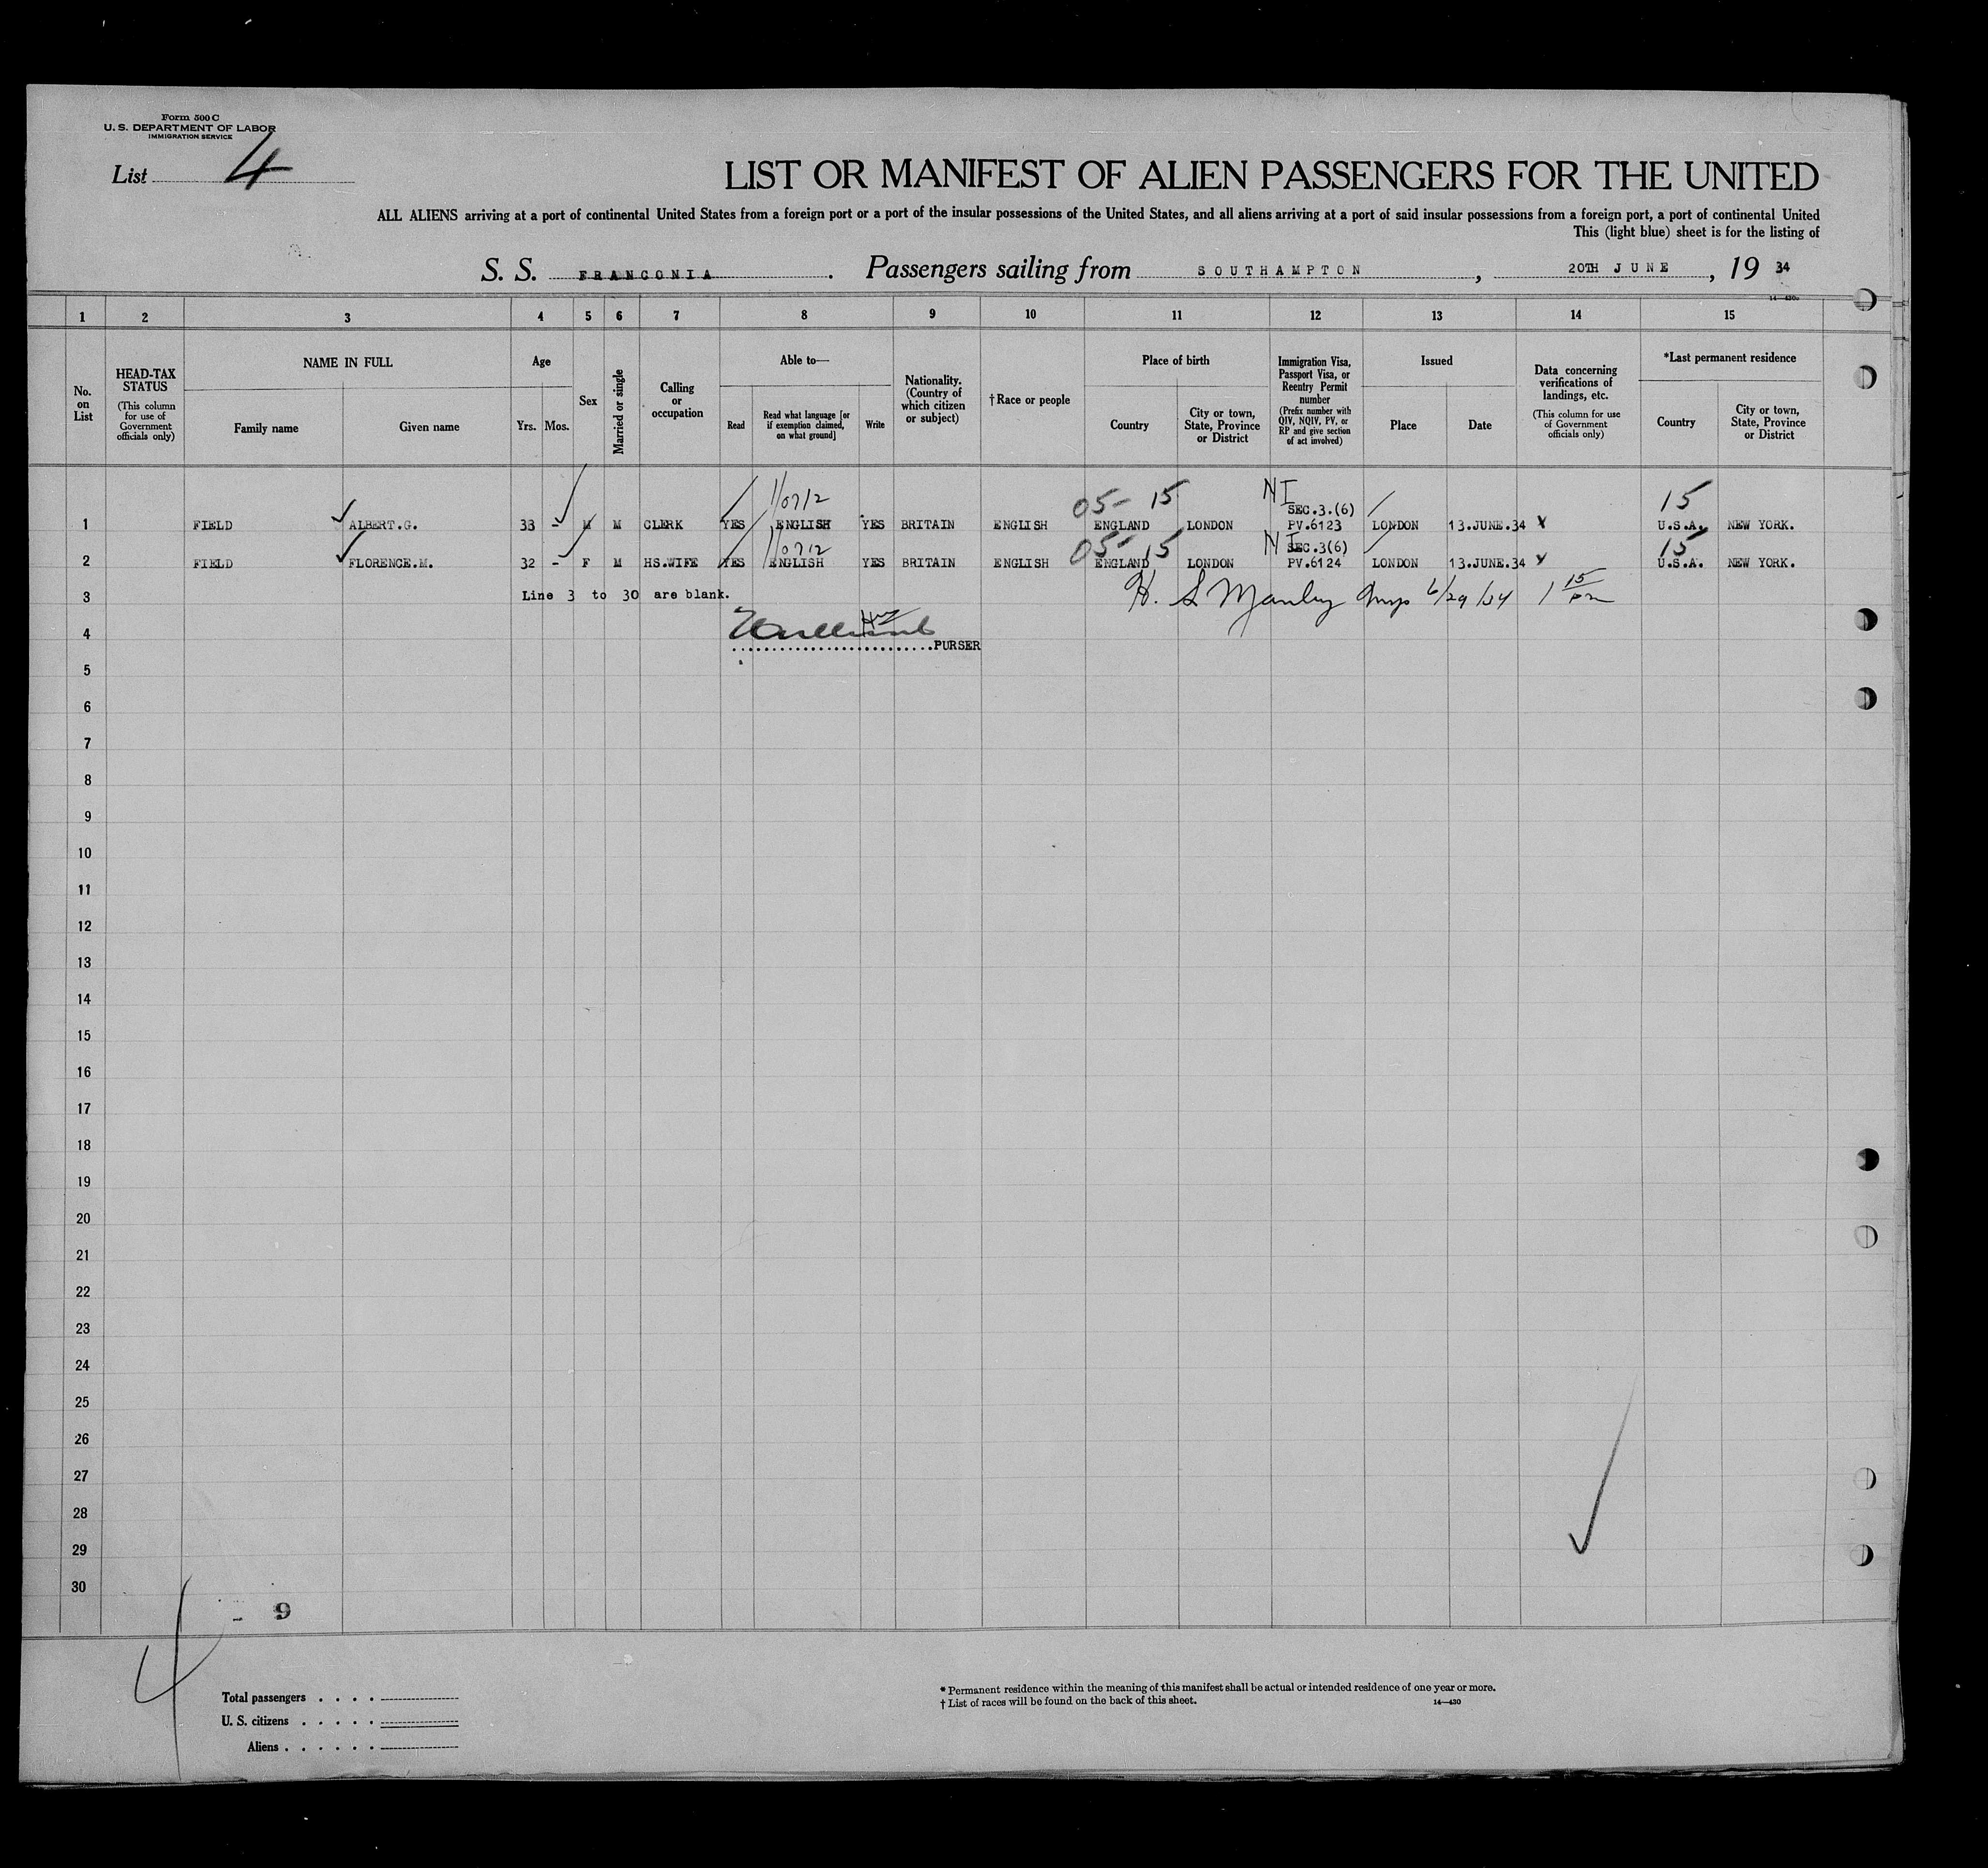 Form 500 C
U. S. DEPARTMENT OF LABOR
IMMIGRATION SERVICE
List 4
LIST OR MANIFEST OF ALIEN PASSENGERS FOR THE UNITED
ALL ALIENS arriving at a port of continental United States from a foreign port or a port of the insular possessions of the United States, and all aliens arriving at a port of said insular possessions from a foreign port, a port of continental United
This (light blue) sheet is for the listing of
S. S. FRANCONIA. Passengers sailing from SOUTHAMPTON, 20TH JUNE, 19 34
1 2 3 4 5 6 7 8 9 10 11 12 13 14 15
No. on List
HEAD-TAX STATUS
(This column for use of Government officials only)
NAME IN FULL
Family name Given name
Age
Yrs. Mos.
Sex
Married or single
Calling or occupation
Able to—
Read
Read what language [or if exemption claimed, on what ground]
Write
Nationality. (Country of which citizen or subject)
†Race or people
Place of birth
Country
City or town, State, Province or District
Immigration Visa, Passport Visa, or Reentry Permit number
(Prefix number with QIV, NQIV, PV, or RP and give section of act involved)
Issued
Place Date
Data concerning verifications of landings, etc.
(This column for use of Government officials only)
*Last permanent residence
Country
City or town, State, Province or District
05- 15 NI 15
SEC.3.(6)
1 FIELD ALBERT.G. 33 - M M CLERK YES ENGLISH YES BRITAIN ENGLISH ENGLAND LONDON PV.6123 LONDON 13.JUNE.34 U.S.A. NEW YORK.
05- 15 NI SEC.3(6) 15
2 FIELD FLORENCE.M. 32 - F M HS.WIFE YES ENGLISH YES BRITAIN ENGLISH ENGLAND LONDON PV.6124 LONDON 13.JUNE.34 U.S.A. NEW YORK.
3 Line 3 to 30 are blank. H. S Manley 6/29/34 1 15 pm
4
PURSER
5
6
7
8
9
10
11
12
13
14
15
16
17
18
19
20
21
22
23
24
25
26
27
28
29
30
- 9
4
Total passengers . . . .
U. S. citizens . . . . .
Aliens . . . . . .
* Permanent residence within the meaning of this manifest shall be actual or intended residence of one year or more.
† List of races will be found on the back of this sheet. 14—430